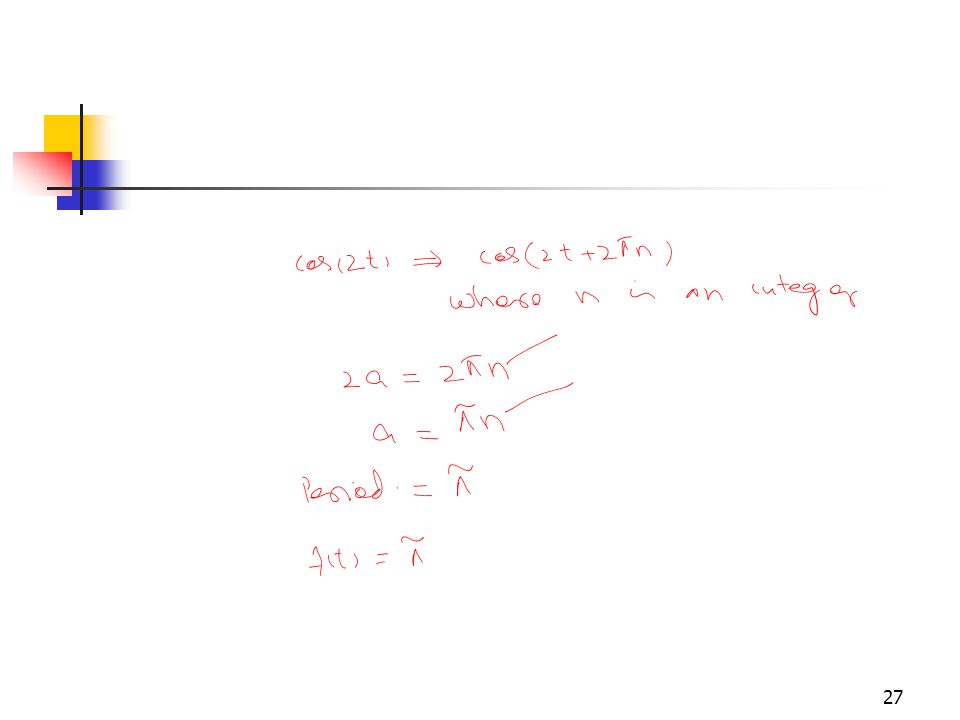 cos(2t) ⇒ cos(2t+2πn)
where n is an integer
2a = 2πn
a = πn
Period = π
f(t) = π
27